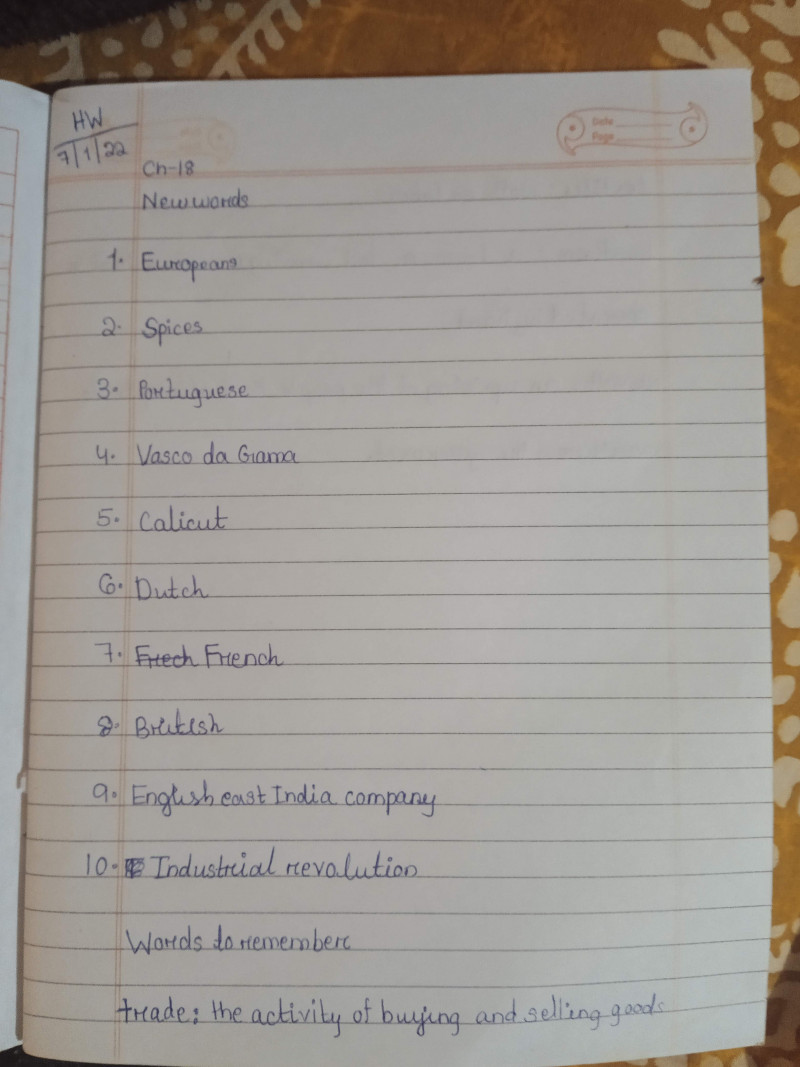 HW
7/1/22
Date
Page
Ch-18
New words
1. Europeans
2. Spices
3. Portuguese
4. Vasco da Gama
5. Calicut
6. Dutch
7. Frech French
8. British
9. English east India company
10. Industrial revolution
Words to remember
trade: the activity of buying and selling goods